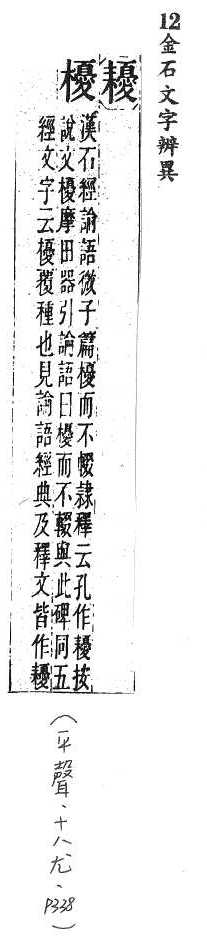 12金石文字辨異
耰
櫌
漢石經論語微子篇櫌而不輟隷釋云孔作耰按
說文櫌摩田器引論語曰櫌而不輟與此碑同五
經文字云櫌覆種也見論語經典及釋文皆作耰
(平聲、十八尤、P338)